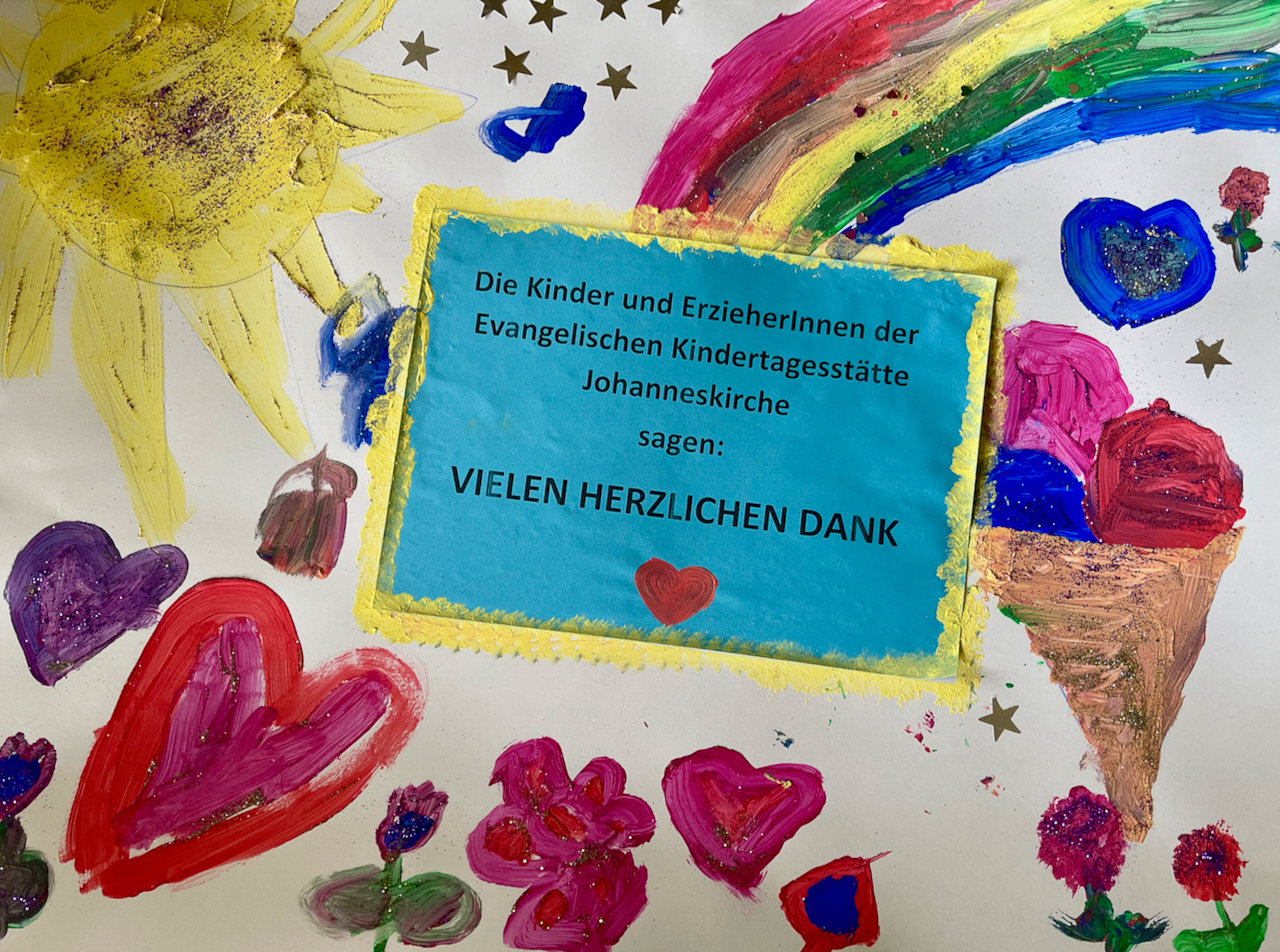 Die Kinder und ErzieherInnen der
Evangelischen Kindertagesstätte
Johanneskirche
sagen:
VIELEN HERZLICHEN DANK